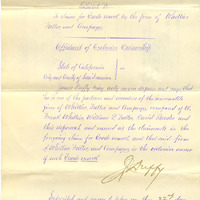 Exhibit A
To claim for Trade mark by the firm of Whittier
Fuller and Company.
Affidavit of Exclusive Ownership
State of California
City and County of San Francisco
James Duffy being duly sworn deposes and says that
he is one of the partners and members of the mercantile
firm of Whittier, Fuller and Company, composed of W.
Frank Whittier, William P. Fuller, and
this deponent and named as the claimants in the
foregoing claim for Trade mark, and that said firm
of Whittier, Fuller and Company, is the exclusive owner
of such Trade mark.
J Duffy
Subscribed and sworn to before me this 22nd day